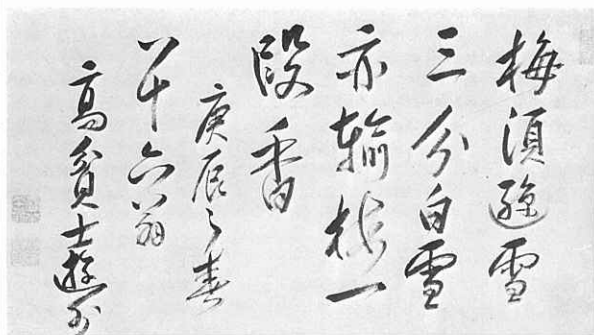 梅須遜雪
三分白雪
亦輸梅一
段香
庚辰之春
八十六翁
高貧士